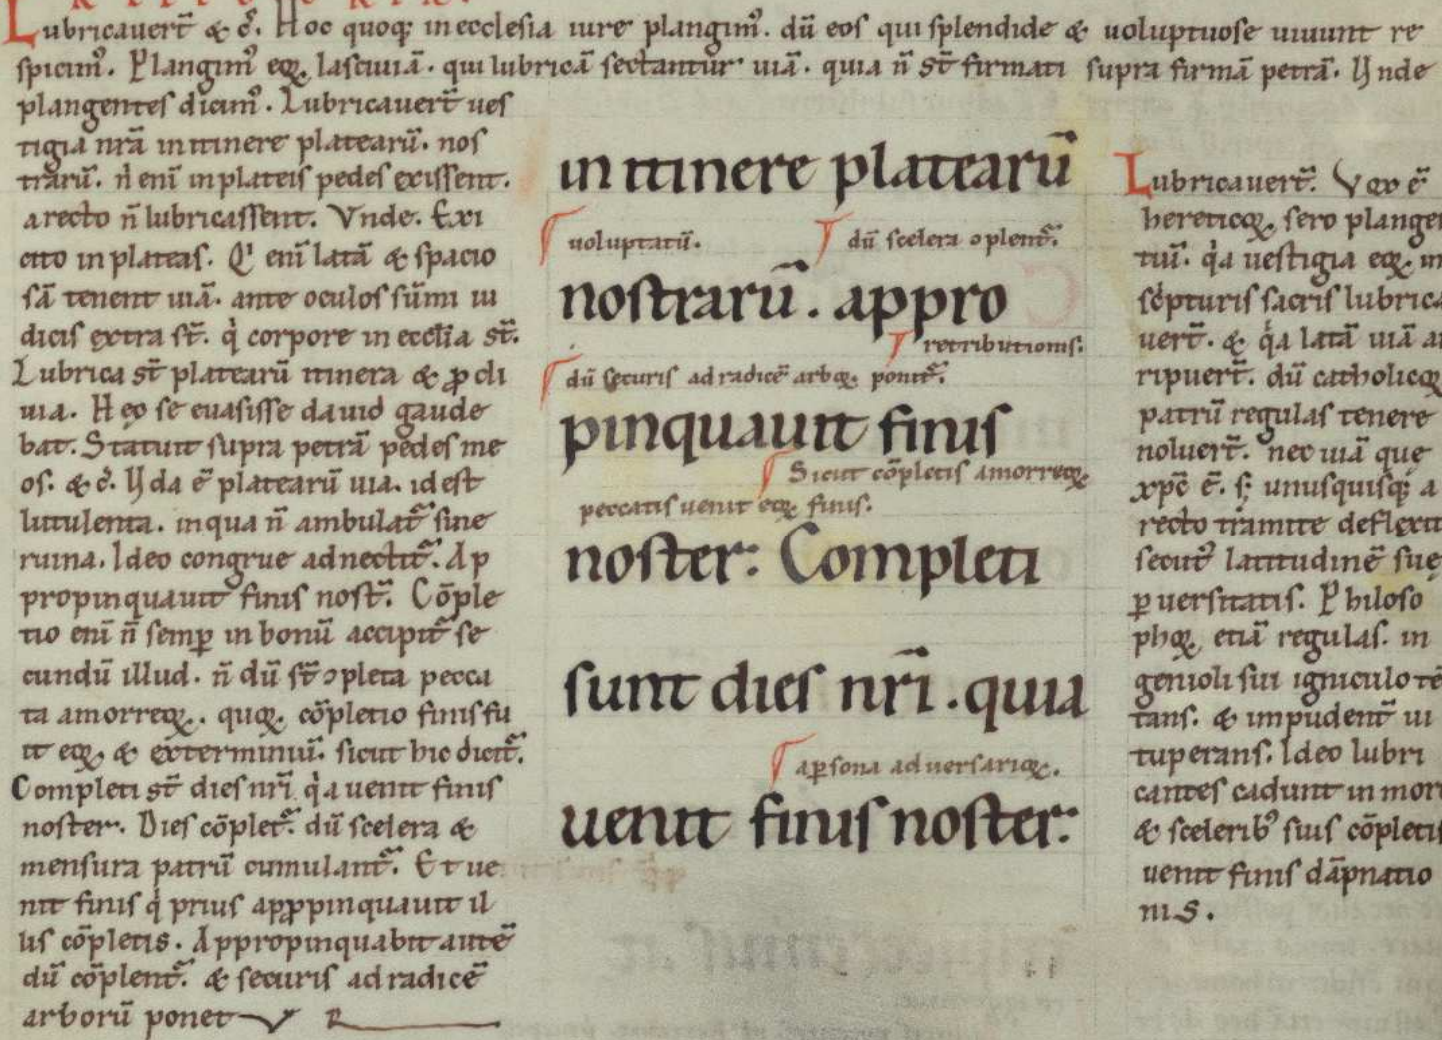 Lubricauert̄ & c̄. Hoc quoq; in ecclesia iure plangim᷒. dū eos qui splendide & uoluptuose uiuunt re
spicim᷒. Plangim᷒ eoꝝ lasciuiā. qui lubricā sectantur uiā. quia n̄ st̄ firmati supra firmā petrā. Unde
plangentes dicam᷒. Lubricauert̄ ues
tigia nr̄a in itinere platearū. nos
trarū. n̄ eni in plateis pedes exissent.
a recto n̄ lubricassent. Vnde. Exi
cito in plateas. Qͥ eni latā & spacio
sā tenent uiā. ante oculos sūmi iu
dicis extra st̄. qͥ corpore in eccl̄ia st̄.
Lubrica st̄ platearū itinera & ꝓcli
uia. Hec̨ se euasisse dauid gaude
bat. Statuit supra petrā pedes me
os. & c̄. Uda ē platearū uia. id est
lutulenta. in qua n̄ ambulat̄ sine
ruina. Ideo congrue adnectit̄. Ap
propinquauit finis nost̄. Cōple
tio eni n̄ semꝑ in bonū accipit̄ se
cundū illud. n̄ dū st̄ ↄpleta pecca
ta amorreoꝝ. quoꝝ cōpletio finis fu
it eoꝝ & exterminiū. sicut hic dicit̄.
Completi st̄ dies nr̄i qͥa uenit finis
noster. Dies cōplet̄. dū scelera &
mensura patrū cumulant̄. Et ue
nit finis qͥ prius apꝓpinquauit il
lis cōpletis. Appropinquabit autē
dū cōplent̄. & securis ad radicē
arborū ponet
in itinere platearū
uoluptatū. dū scelera ↄplent̄.
nostrarū. appro
retributionis.
dū securis ad radicē arboꝝ ponit̄.
pinquauit finis
Sicut cōpletis amorreoꝝ
peccatis uenit eoꝝ finis.
noster: Completi
sunt dies nr̄i. quia
a ꝑsona aduersarioꝝ.
uenit finis noster:
Lubricauert̄. Vox ē
hereticoꝝ. sero plangen
tiū. qͥa uestigia eoꝝ in
sc̄pturis sacris lubrica
uert̄. & qͥa latā uiā ar
ripuert̄. dū catholicoꝝ
patrū regulas tenere
noluert̄. nec uiā que
xp̄c ē. s; unusquisq; a
recto tramite deflexit
secut᷒ latitudinē sue
ꝑuersitatis. Philoso
phoꝝ etiā regulas. in
genioli sui igniculo tē
tans. & impudent̄ ui
tuperans. Ideo lubri
cantes cadunt in mor
& scelerib᷒ suis cōpletis
uenit finis dāpnatio
nis.